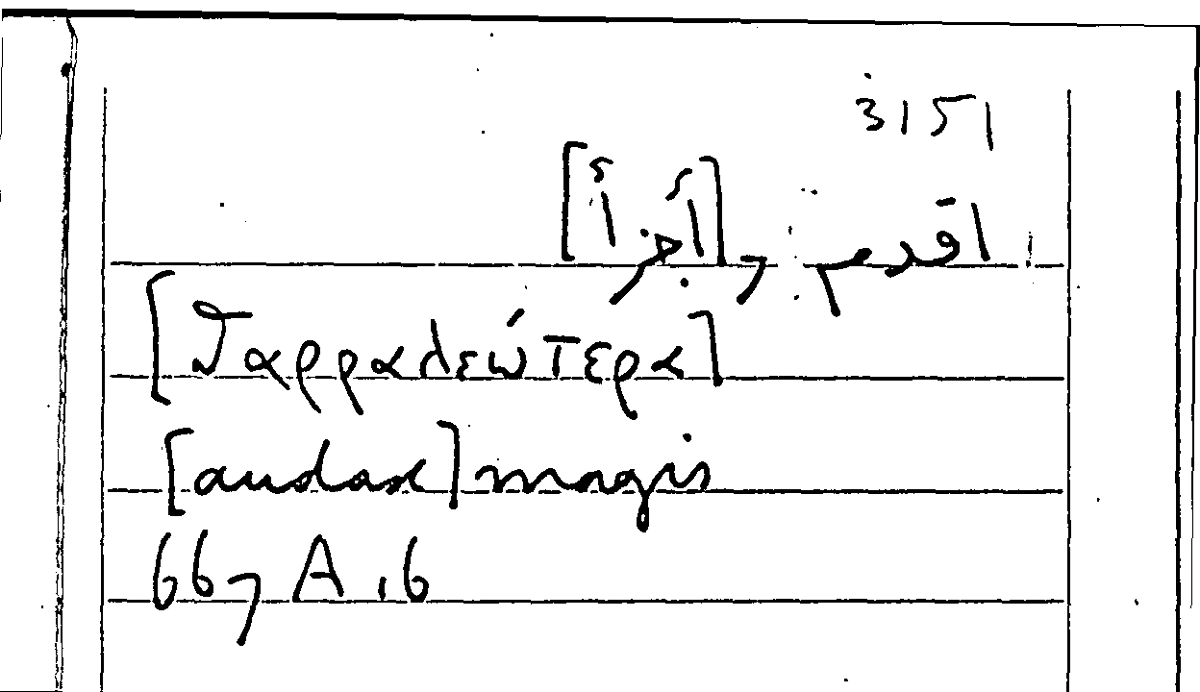 3151
اقدم و [أجرأ]
[ϑαρραλεώτερα]
[audax] magis
667 A , 6